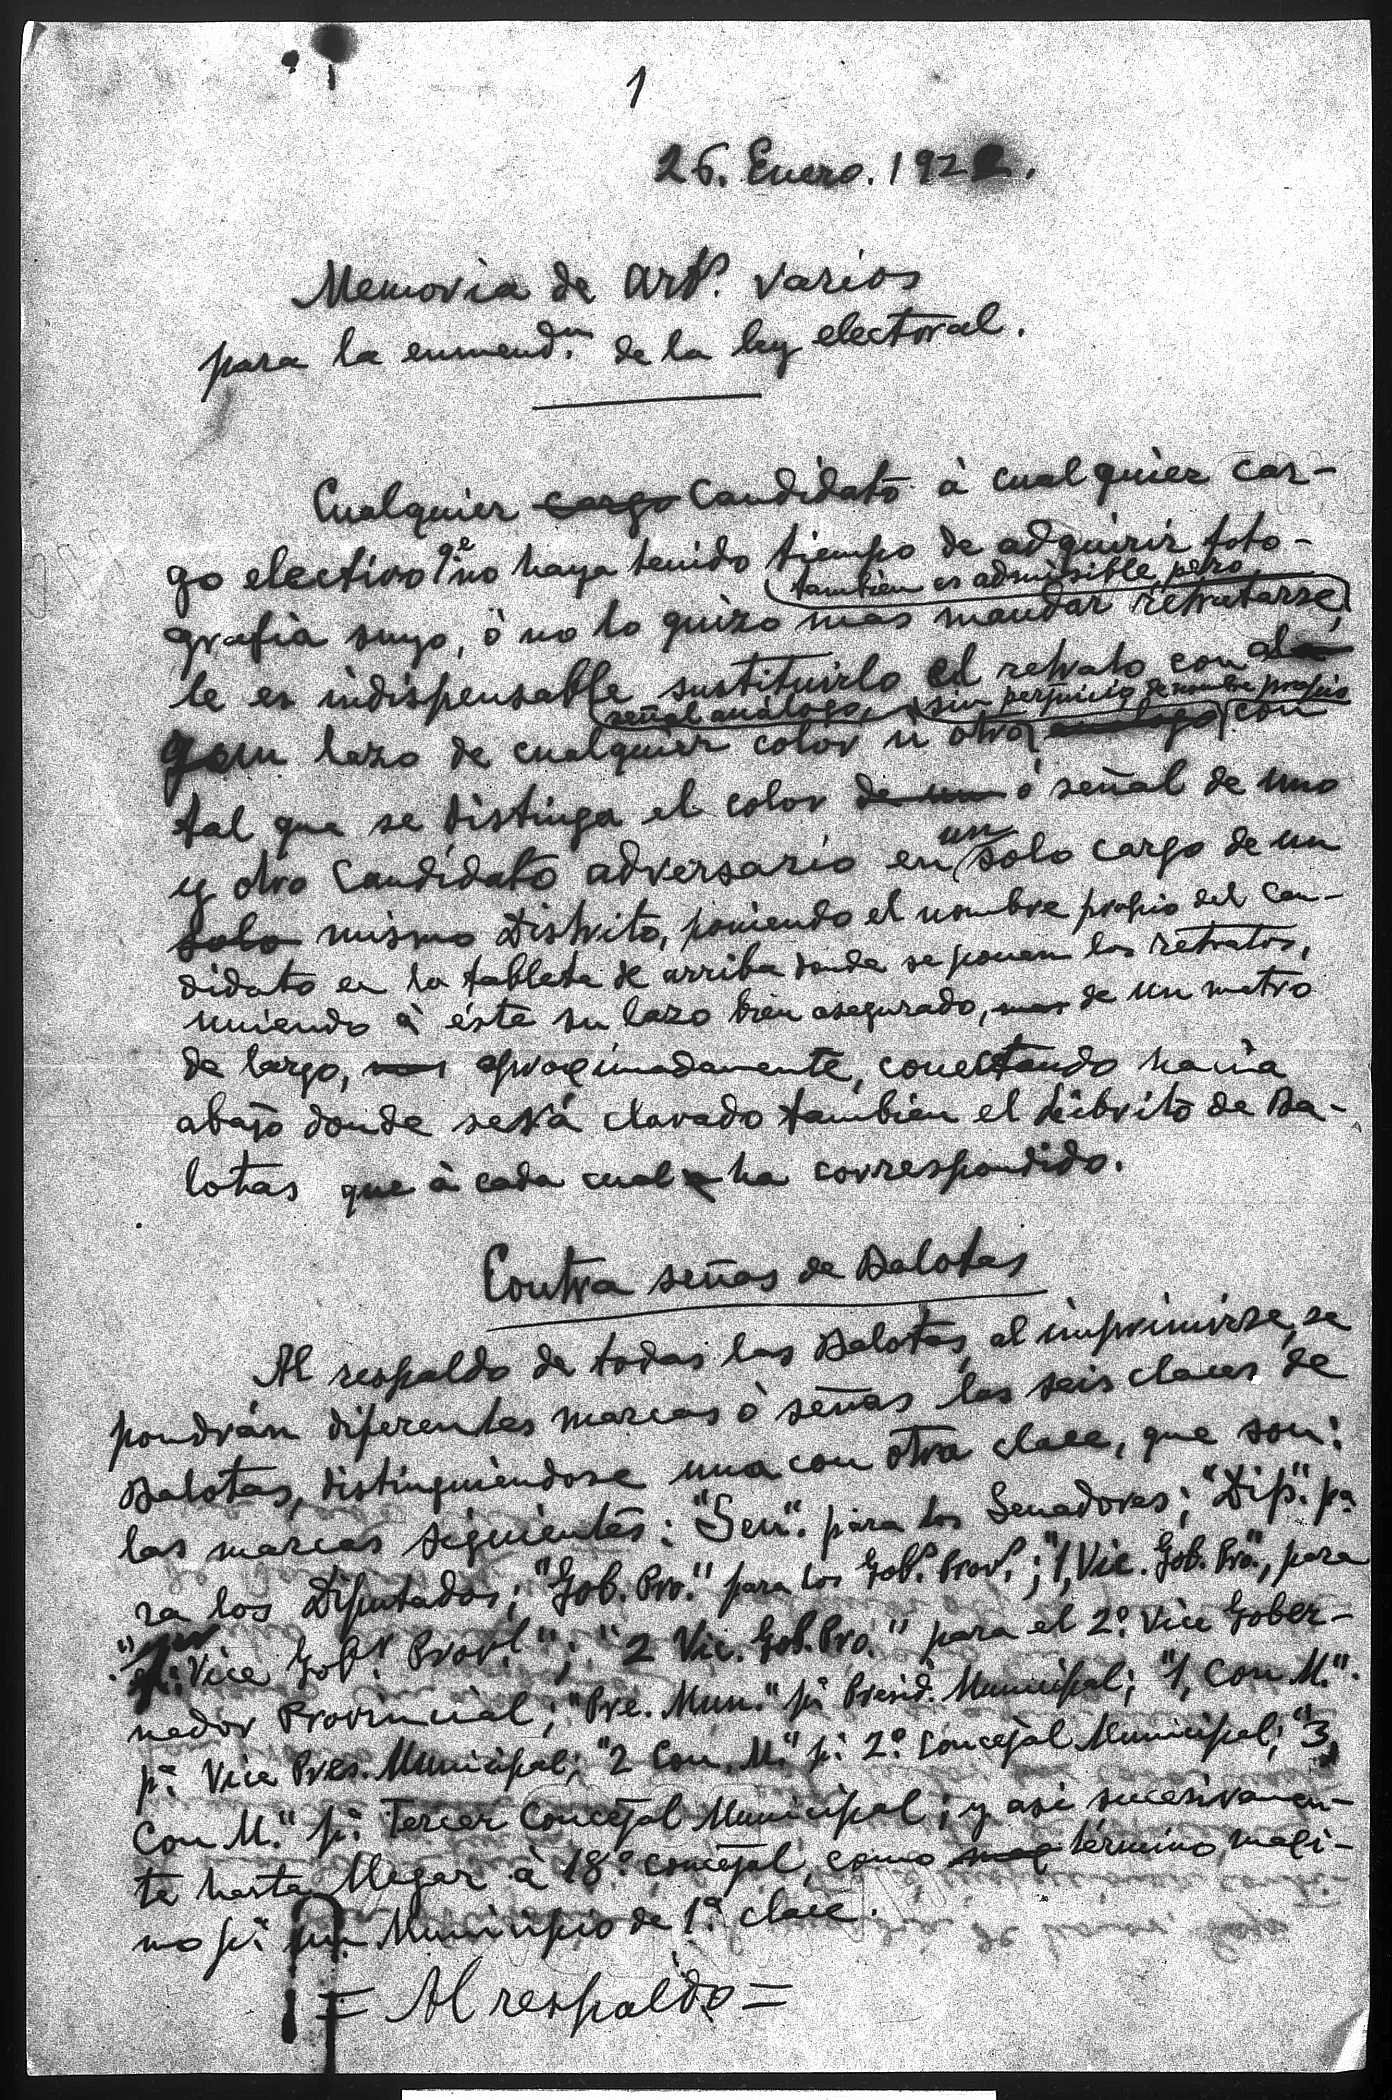 1
26. Enero. 1922.
Memoria de artˢ. varios
para la enmendᵒⁿ. de la ley electoral.
Cualquier cargo Candidato à cualquier car-
go electivo qᵉ no haya tenido tiempo de adquirir foto-
tambien es admisible, pero
grafia suyo, ò no lo quizo mas mandar retratarse,
le es indispensable sustituirlo el retrato con al
señal análogo, sin perjuicio, de nombre propio
gun lazo de cualquier color u otro analogo con
tal que se distinga el color de un ó señal de uno
y otro Candidato adversario en un solo cargo de un
solo mismo Distrito, poniendo el nombre propio del Can-
didato en la tableta de arriba donde se ponen los retratos,
uniendo à éste su lazo bien asegurado, mas de un metro
de largo, mas aproximadamente, conectando hacia
abajo donde será clavado tambien el Librito de Ba-
lotas que à cada cual a ha correspondido.
Contra señas de Balotas
Al respaldo de todas las Balotas, al imprimirse, se
pondrán diferentes marcas ò señas las seis claces de
Balotas, distinguiendose una con otra clace, que son:
las marcas siguientes: "Sen". para los Senadores; "Dip". pa-
ra los Diputados; "Gob. Pro." para los Gobˢ. Provˢ.; "1, Vic. Gob. Pro.", para
el 1ᵉʳ. Vice Gobʳ. Provˡ."; "2 Vic. Gob. Pro." para el 2.º Vice Gober-
nador Provincial; "Pre. Mun." pª Presidᵉ. Municipal; "1, Con. M.".
pª Vice Pres. Municipal; "2 Con. M." pª 2.º Concejal Municipal; "3,
Con M." pª. Tercer Concejal Municipal; y asi sucesivamen-
te hasta llegar à 18.º concejal, como maq término, maxi-
mo pª un Municipio de 1.ª clace.
= Al respaldo =